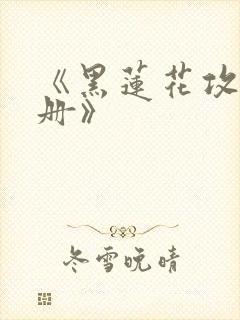 《黑蓮花攻
册》
冬雪晚晴